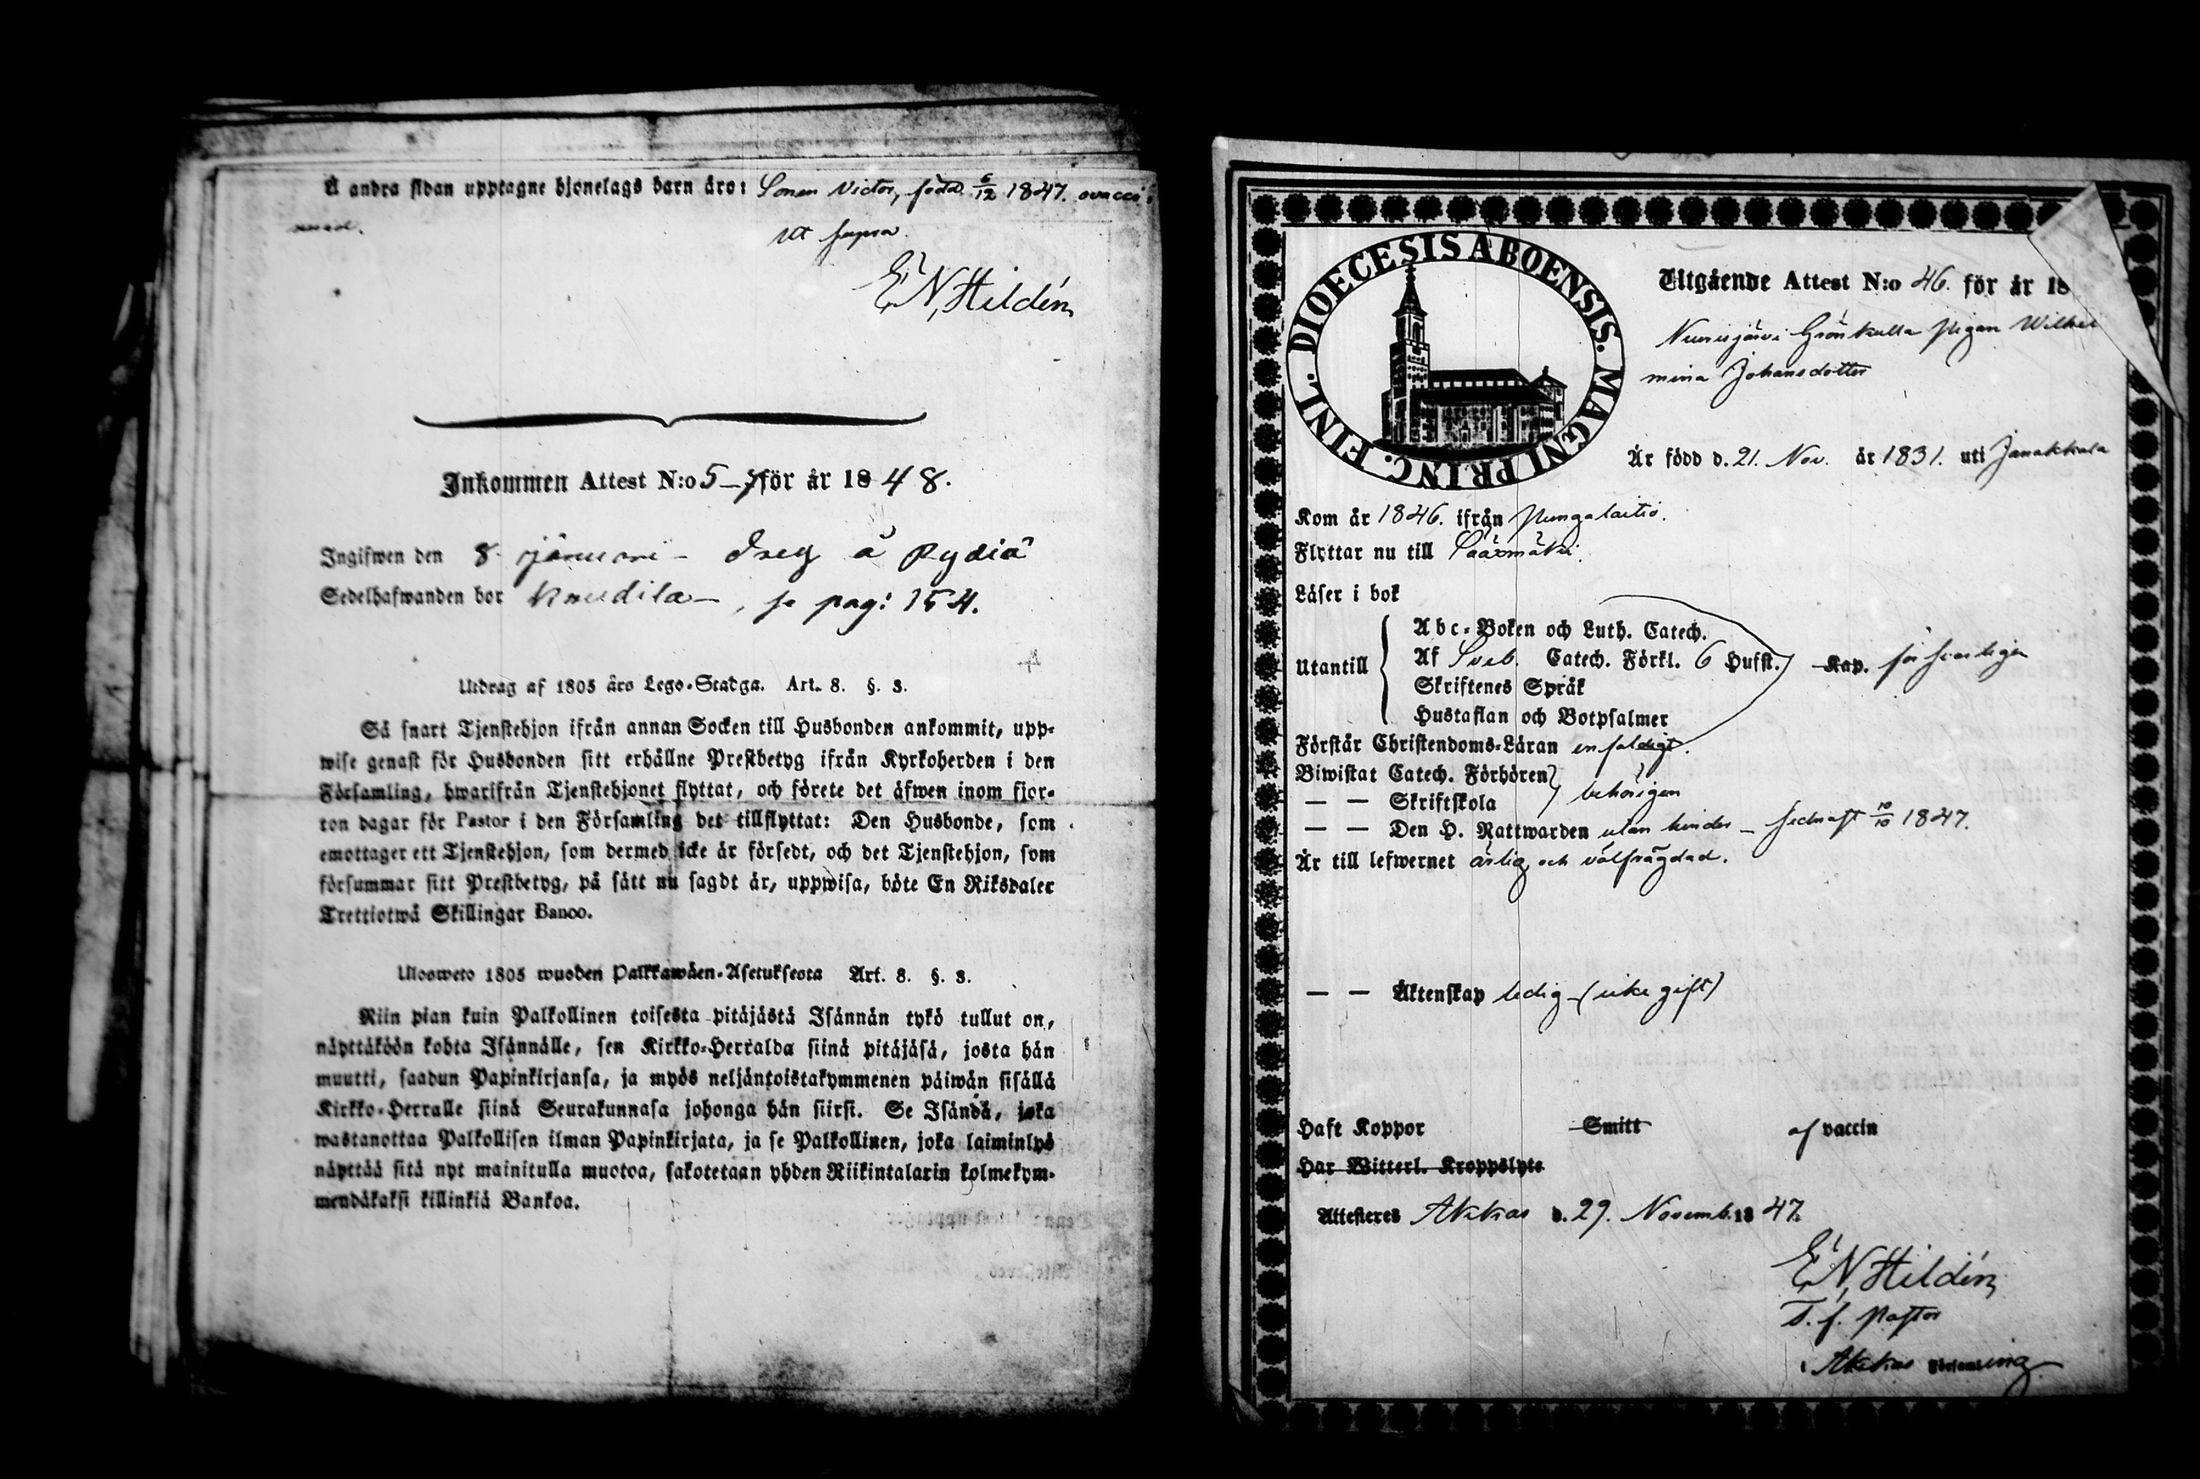 Å andra sidan upptagne hjonelags barn äro: Sonen Victor, född 6/12 1847. ovacci-
nerad.
Ut supra
E. N. Hildén
Inkommen Attest N:o 5-7 för år 1848.
Ingifwen den 8 januari
Sedelhafwanden bor , se pag: 154.
Utdrag af 1805 års Lego-Stadga. Art. 8. §. 3.
Så snart Tjenstehjon ifrån annan Socken till Husbonden ankommit, upp-
wise genast för Husbonden sitt erhållne Prestbetyg ifrån Kyrkoherden i den
Församling, hwarifrån Tjenstehjonet flyttat, och förete det äfwen inom fjor-
ton dagar för Pastor i den Församling det tillflyttat: Den Husbonde, som
emottager ett Tjenstehjon, som dermed icke är försedt, och det Tjenstehjon, som
försummar sitt Prestbetyg, på sätt nu sagdt är, uppwisa, böte En Riksdaler
Trettiotwå Skillingar Banco.
Ulosweto 1805 wuoden Palkkawäen-Asetuksesta Art. 8. §. 3.
Niin pian kuin Palkollinen toisesta pitäjästä Isännän tykö tullut on,
näyttäköön kohta Isännälle, sen Kirkko-Herralda siinä pitäjäsä, josta hän
muutti, saadun Papinkirjansa, ja myös neljäntoistakymmenen päiwän sisällä
Kirkko-Herralle siinä Seurakunnasa johonga hän siirsi. Se Isändä, joka
wastanottaa Palkollisen ilman Papinkirjata, ja se Palkollinen, joka laiminlyö
näyttää sitä nyt mainitulla muotoa, sakotetaan yhden Riikintalarin kolmekym-
mendäkaksi killinkiä Bankoa.
DIOECESIS ABOENSIS. MAGNI PRINC. FINL.
Utgående Attest N:o 46. för år 18
Nuusjärvi Grönkulla pigan Wilhel
mina Johansdotter
Är född d. 21. Nov. år 1831. uti Janakkala
Kom år 1846. ifrån Pungalaitio.
Flyttar nu till Sääxmäki.
Läser i bok
Utantill
Abc-Boken och Luth. Catech.
Af Sveb. Catech. Förkl. 6 Hufst. Kap. försvarligen
Skriftenes Språk
Hustaflan och Botpsalmer
Förstår Christendoms-Läran enfaldigt.
Biwistat Catech. Förhören
— — Skriftskola behörigen
— — Den H. Nattwarden utan hinder – sednast 10/10 1847.
Är till lefwernet ärlig och välfrägdad.
— — Äktenskap ledig (icke gift)
Haft Koppor Smitt af vaccin
Har Witterl. Kroppslyte
Attesteres Akkas d. 29. Novemb. 1847.
E. N. Hildén
T. f. Pastor
i Akkas Församling